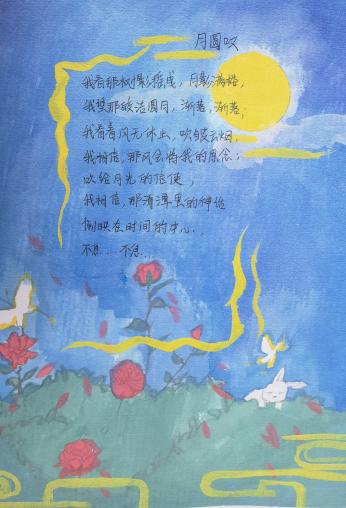 月圆叹
我看那树影摇曳，月影满梢，
我梦那皎洁圆月，渐落，渐落；
我看春风无休止，吹皱云烟，
我相信，那风会将我的思念；
以给月光的信使；
我相信，那清潭里的神往
倒映在时间的中心..
不息....不息....